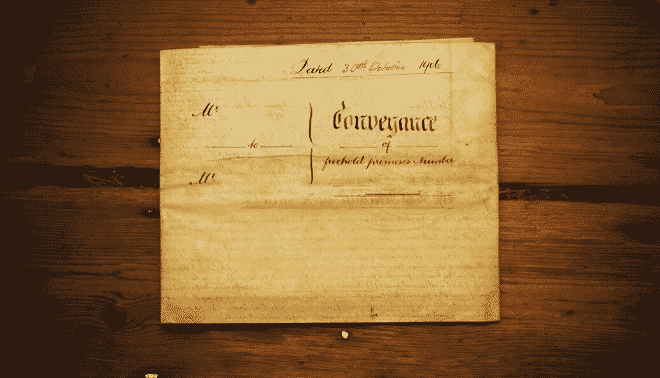 Dated 30th October 1906
Mr
Conveyance
to
of
freehold premises Number
Mr